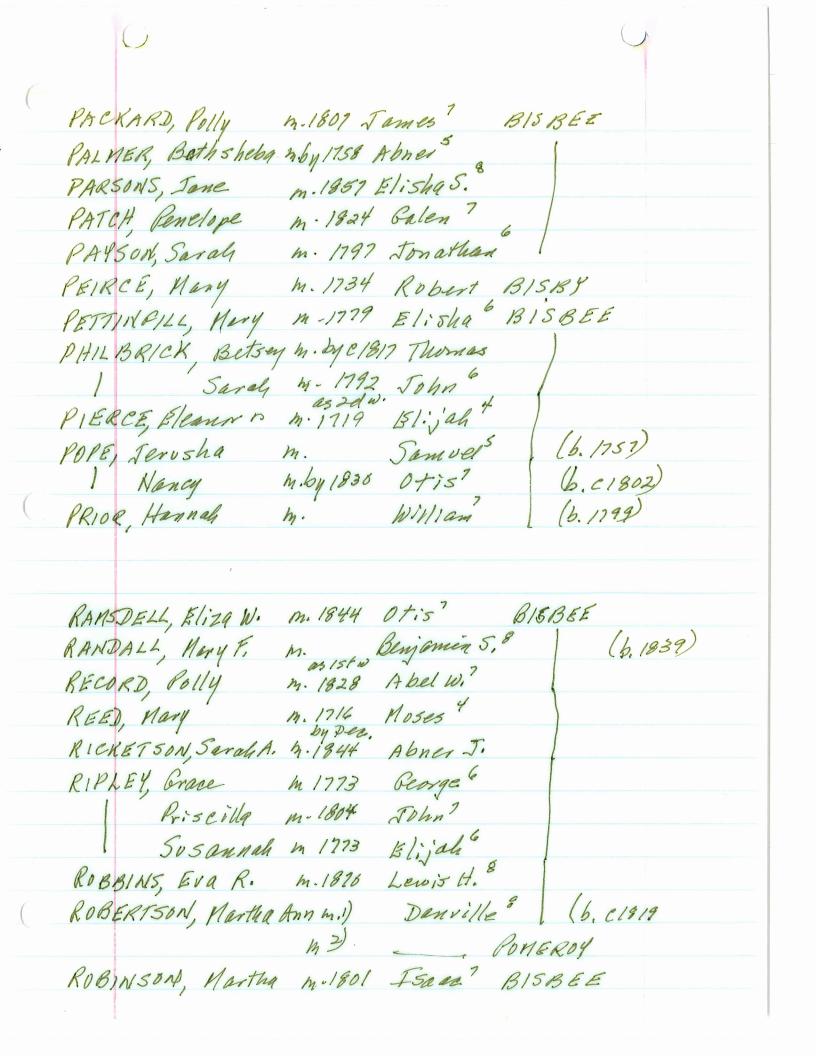 PACKARD, Polly m. 1807 James⁷ BISBEE
PALMER, Bathsheba m by 1758 Abner⁵
PARSONS, Jane m. 1857 Elisha S.⁸
PATCH, Penelope m. 1824 Galen⁷
PAYSON, Sarah m. 1797 Jonathan⁶
PEIRCE, Mary m. 1734 Robert BISBY
PETTINGILL, Mary m - 1779 Elisha⁶ BISBEE
PHILBRICK, Betsey m. by c1817 Thomas
Sarah m - 1792 John⁶
as 2d w.
PIERCE, Eleanor m. 1719 Elijah⁴
POPE, Jerusha m. Samuel⁵ (b. 1757)
Nancy m. by 1830 Otis⁷ (b. c1802)
PRIOR, Hannah m. William⁷ (b. 1799)
RAMSDELL, Eliza W. m. 1844 Otis⁷ BISBEE
RANDALL, Mary F. m. Benjamin S.⁸ (b. 1839)
as 1st w
RECORD, Polly m. 1828 Abel W.⁷
REED, Mary m. 1716 Moses⁴
by Dec.
RICKETSON, Sarah A. m. 1844 Abner J.
RIPLEY, Grace m 1773 George⁶
Priscilla m - 1804 John⁷
Susannah m 1773 Elijah⁶
ROBBINS, Eva R. m. 1876 Lewis H.⁸
ROBERTSON, Martha Ann m. 1) Danville⁸ (b. c1819
m 2) ——— POMEROY
ROBINSON, Martha m. 1801 Isaac⁷ BISBEE